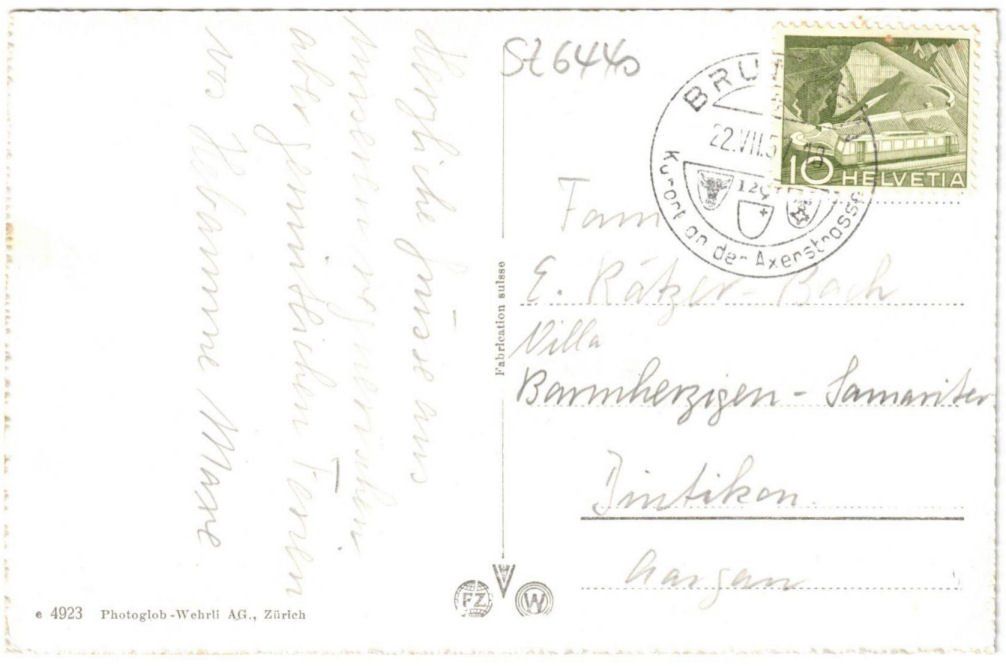 Herzliche Grüsse aus
unseren
aber gemütlichen Ferien
von Hebamme
SZ 6440
BRUNNEN
22.VII.5
1291
Kurort an der Axenstrasse
10 HELVETIA
Fam
E. Rätzer-Bach
Villa
Barmherzigen - Samariter
Dintikon.
Aargau
Fabrication suisse
FZ
W
e 4923 Photoglob-Wehrli AG., Zürich